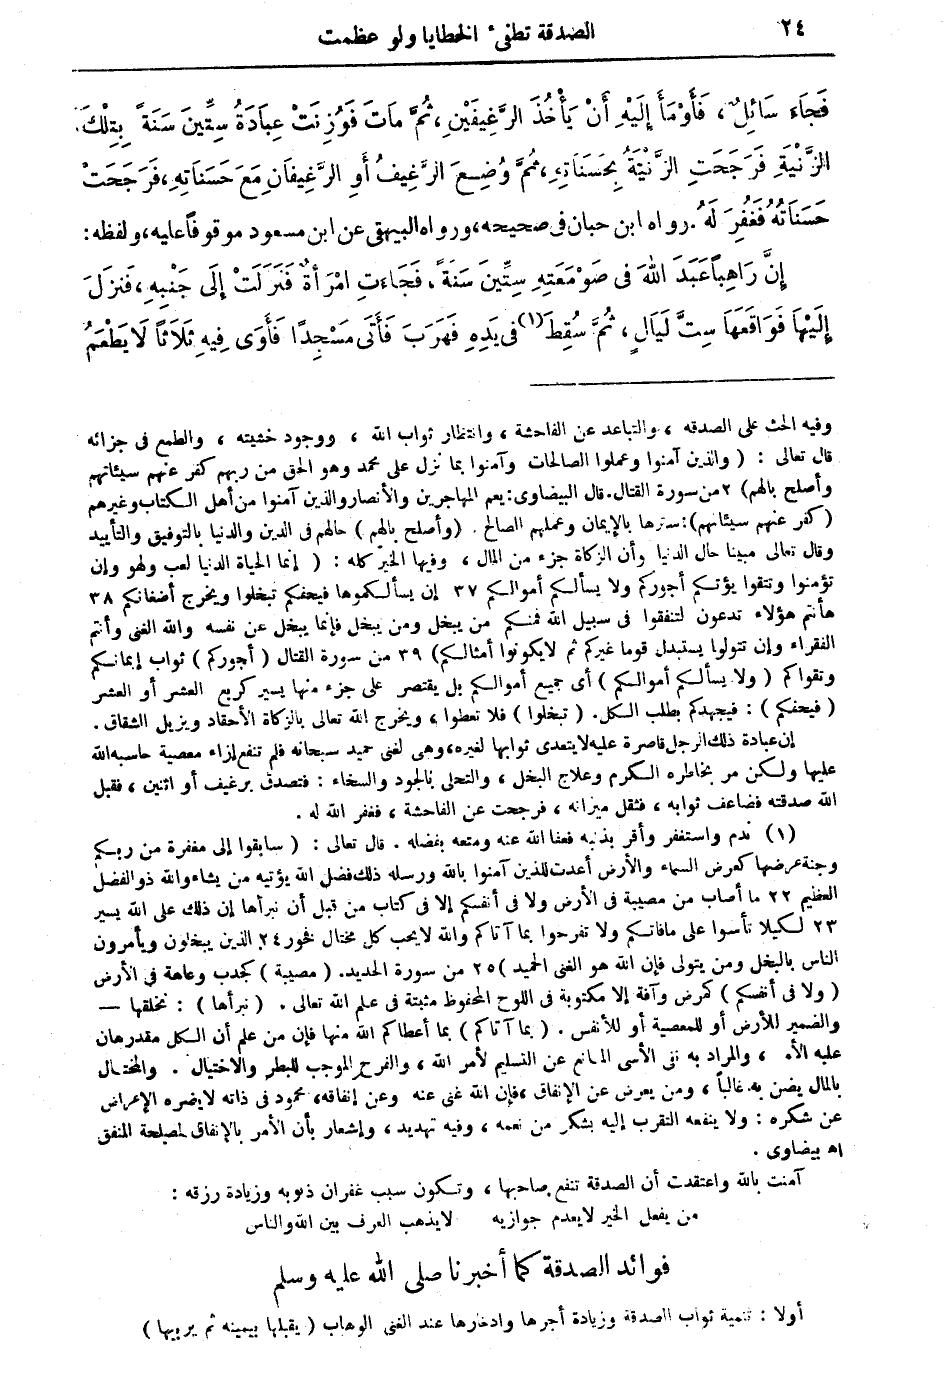 ٢٤
الصدقة تطفىء الخطايا ولو عظمت
فَجَاءَ سَائِلٌ، فَأَوْمَأَ إِلَيْهِ أَنْ يَأْخُذَ الرَّغِيفَيْنِ، ثُمَّ مَاتَ فَوُزِنَتْ عِبَادَةُ سِتِّينَ سَنَةً بِتِلْكَ
الزَّنْيَةِ فَرَجَحَتِ الزَّنْيَةُ بِحَسَنَاتِهِ، ثُمَّ وُضِعَ الرَّغِيفُ أَوِ الرَّغِيفَانِ مَعَ حَسَنَاتِهِ، فَرَجَحَتْ
حَسَنَاتُهُ فَغُفِرَ لَهُ. رواه ابن حبان فى صحيحه، ورواه البيهقى عن ابن مسعود موقوفاً عليه، ولفظه:
إِنَّ رَاهِباً عَبَدَ اللهَ فى صَوْمَعَتِهِ سِتِّينَ سَنَةً، فَجَاءَتِ امْرَأَةٌ فَنَزَلَتْ إِلَى جَنْبِهِ، فَنَزَلَ
إِلَيْهَا فَوَاقَعَهَا سِتَّ لَيَالٍ، ثُمَّ سُقِطَ (١) فى يَدِهِ فَهَرَبَ فَأَتَى مَسْجِدًا فَأَوَى فِيهِ ثَلَاثًا لَا يَطْعَمُ
وفيه الحث على الصدقه، والتباعد عن الفاحشة، وانتظار ثواب الله، ووجود خشيته، والطمع فى جزائه
قال تعالى: (والذين آمنوا وعملوا الصالحات وآمنوا بما نزل على محمد وهو الحق من ربهم كفر عنهم سيئاتهم
وأصلح بالهم) ٢ من سورة القتال. قال البيضاوى: يعم المهاجرين والأنصار والذين آمنوا من أهل الكتاب وغيرهم
(كفر عنهم سيئاتهم): سترها بالإيمان وعملهم الصالح. (وأصلح بالهم) حالهم فى الدين والدنيا بالتوفيق والتأييد
وقال تعالى مبينا حال الدنيا وأن الزكاة جزء من المال، وفيها الخير كله: (إنما الحياة الدنيا لعب ولهو وإن
تؤمنوا وتتقوا يؤتكم أجوركم ولا يسألكم أموالكم ٣٧ إن يسألكموها فيحفكم تبخلوا ويخرج أضغانكم ٣٨
هأنتم هؤلاء تدعون لتنفقوا فى سبيل الله فمنكم من يبخل ومن يبخل فإنما يبخل عن نفسه والله الغنى وأنتم
الفقراء وإن تتولوا يستبدل قوما غيركم ثم لا يكونوا أمثالكم) ٣٩ من سورة القتال (أجوركم) ثواب إيمانكم
وتقواكم (ولا يسألكم أموالكم) أى جميع أموالكم بل يقتصر على جزء منها يسير كربع العشر أو العشر
(فيحفكم): فيجهدكم بطلب الكل. (تبخلوا) فلا تعطوا، ويخرج الله تعالى بالزكاة الأحقاد ويزيل الشقاق.
إن عبادة ذلك الرجل قاصرة عليه لا يتعدى ثوابها لغيره، وهى لغنى حميد سبحانه فلم تنفع إزاء معصية حاسبه الله
عليها ولكن مر بخاطره الكرم وعلاج البخل، والتحلى بالجود والسخاء: فتصدق برغيف أو اثنين، فقبل
الله صدقته فضاعف ثوابه، فثقل ميزانه، فرجحت عن الفاحشة، فغفر الله له.
(١) ندم واستغفر وأقر بذنبه فعفا الله عنه ومتعه بفضله. قال تعالى: (سابقوا إلى مغفرة من ربكم
وجنة عرضها كعرض السماء والأرض أعدت للذين آمنوا بالله ورسله ذلك فضل الله يؤتيه من يشاء والله ذو الفضل
العظيم ٢٢ ما أصاب من مصيبة فى الأرض ولا فى أنفسكم إلا فى كتاب من قبل أن نبرأها إن ذلك على الله يسير
٢٣ لكيلا تأسوا على مافاتكم ولا تفرحوا بما آتاكم والله لا يحب كل مختال فخور ٢٤ الذين يبخلون ويأمرون
الناس بالبخل ومن يتولى فإن الله هو الغنى الحميد) ٢٥ من سورة الحديد. (مصيبة) كجدب وعاهة فى الأرض
(ولا فى أنفسكم) كمرض وآفة إلا مكتوبة فى اللوح المحفوظ مثبتة فى علم الله تعالى. (نبرأها): نخلقها —
والضمير للأرض أو للمعصية أو للأنفس. (بما آتاكم) بما أعطاكم الله منها فإن من علم أن الكل مقدر هان
عليه الأ.، والمراد به نى الأسى المانع عن التسليم لأمر الله، والفرح الموجب للبطر والاختيال. والمختال
بالمال يضن به غالباً، ومن يعرض عن الإنفاق، فإن الله غنى عنه وعن إنفاقه، محمود فى ذاته لا يضره الإعراض
عن شكره: ولا ينفعه التقرب إليه بشكر من نعمه، وفيه تهديد، وإشعار بأن الأمر بالإنفاق لمصلحة المنفق
اه بيضاوى.
آمنت بالله واعتقدت أن الصدقة تنفع صاحبها، وتكون سبب غفران ذنوبه وزيادة رزقه:
من يفعل الخير لا يعدم جوازيه لا يذهب العرف بين الله والناس
فوائد الصدقة كما أخبرنا صلى الله عليه وسلم
أولا: تنمية ثواب الصدقة وزيادة أجرها وادخارها عند الغنى الوهاب (يقبلها بيمينه ثم يربيها)